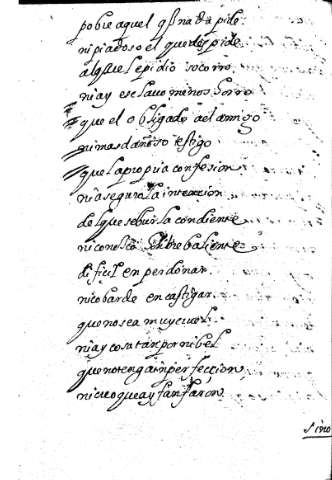 pobre aquel q̃ nada pide
ni piadoso el que despide
al que le pidio socorro
ni ay esclavo menos horro
que el obligado ael amigo
ni mas dañoso testigo
que la propia confesion
ni asegura la intencion
del que se burla con diente
ni conosco hombre baliente
dificil en perdonar
ni cobarde en castigar
que no sea muy cruel
ni ay cosa tan por nibel
que no tenga inperfeccion
ni creo que ay fanfaron
sino